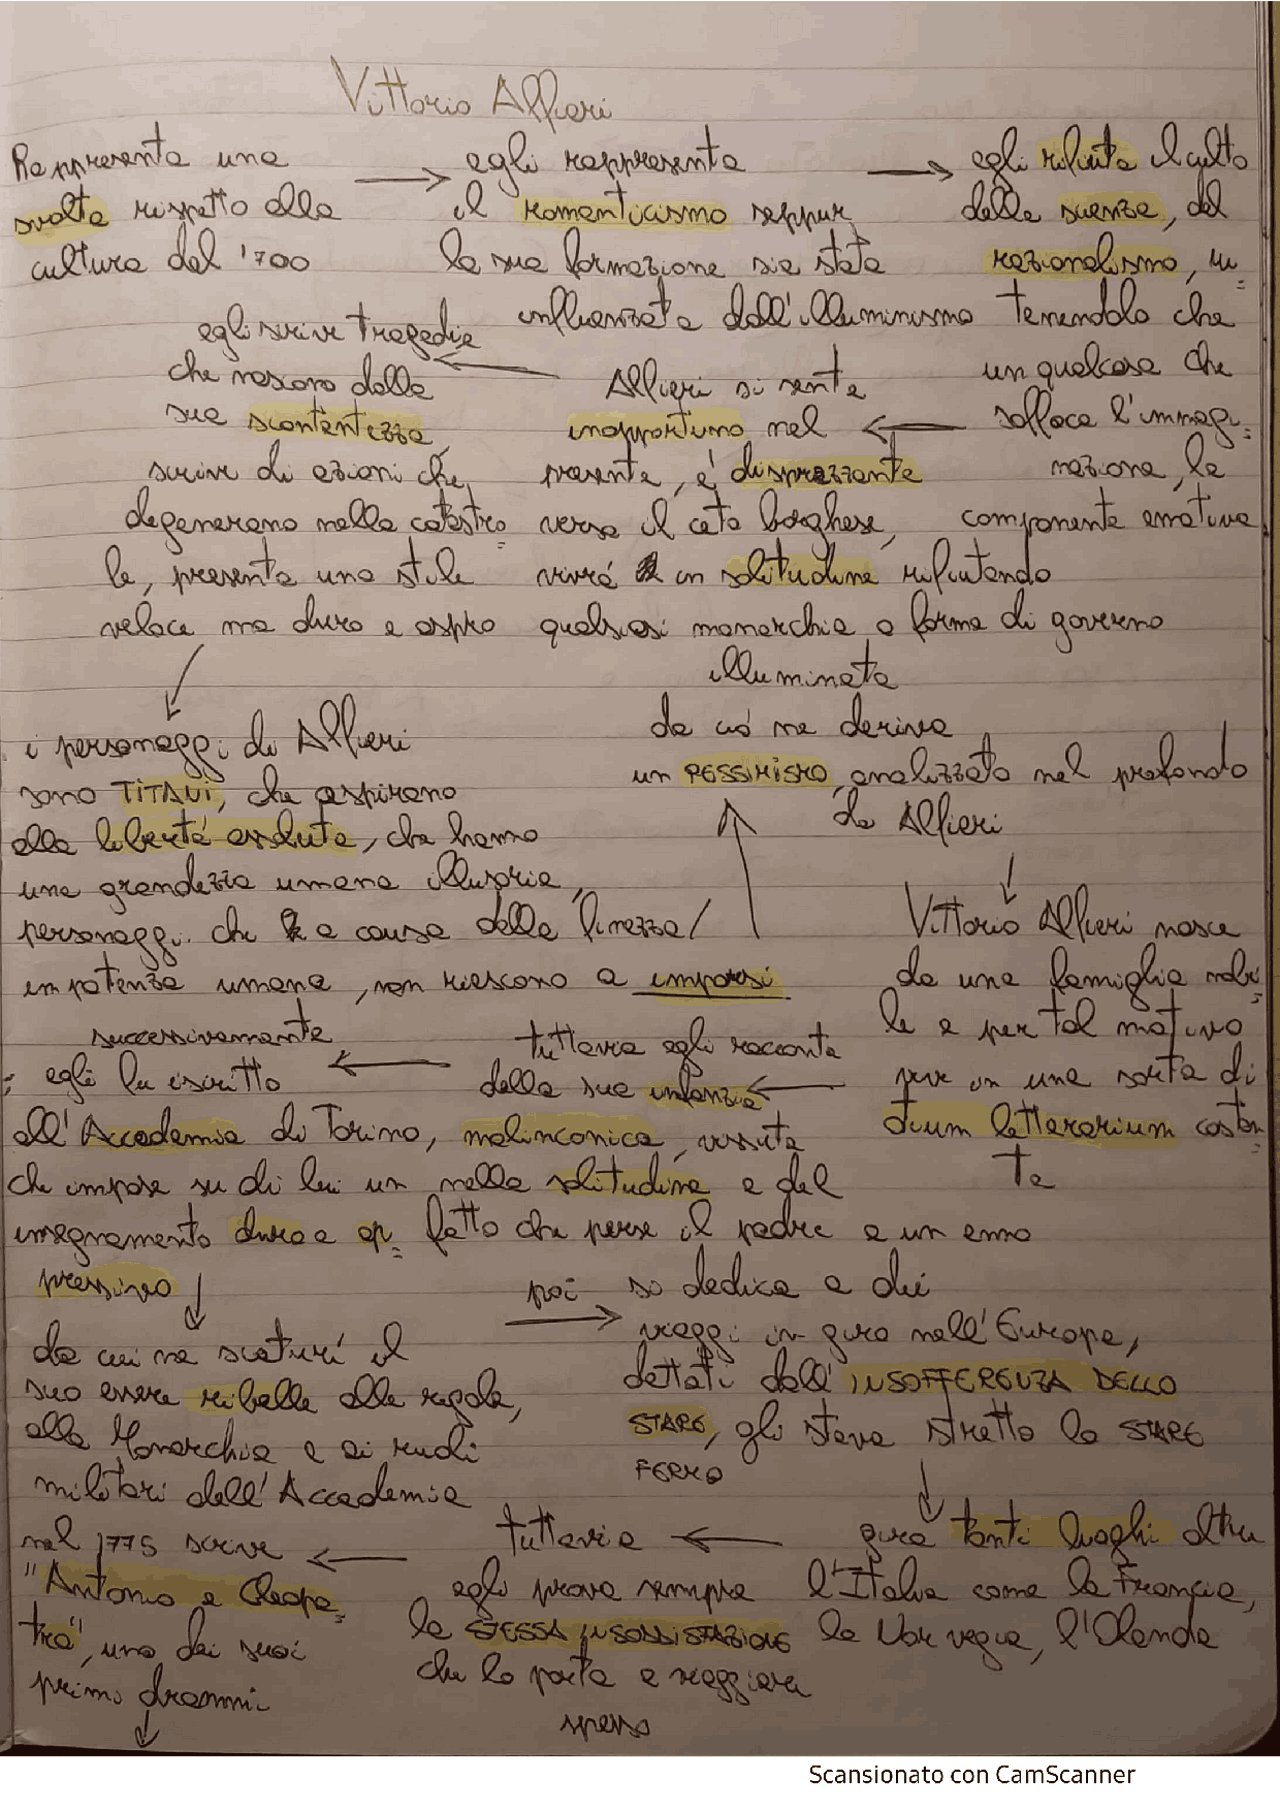 Vittorio Alfieri
Rappresenta una
svolta rispetto alla
cultura del '700
egli rappresenta
il romanticismo seppur
la sua formazione sia stata
influenzata dall'illuminismo
egli rifiuta il culto
della scienza, del
razionalismo, ri=
tenendolo che
un qualcosa che
soffoca l'immagi=
nazione, la
componente emotiva
Alfieri si sente
inopportuno nel
presente, é disprezzante
verso il ceto borghese,
vivrá in solitudine rifiutando
qualsiasi monarchia o forma di governo
illuminata
egli scrive tragedie
che nascono dalla
sua scontentezza,
scrive di azioni che
degenerano nella catastro=
fe, presenta uno stile
veloce ma duro e aspro
i personaggi di Alfieri
sono TITANI, che aspirano
alla libertá assoluta, che hanno
una grandezza umana illusoria,
personaggi che a causa della finezza/
impotenza umana, non riescono a imporsi
da ció ne deriva
un PESSIMISMO, analizzato nel profondo
da Alfieri
Vittorio Alfieri nasce
da una famiglia nobi=
le e per tal motivo
vive in una sorta di
otium letterarium costan=
te
tuttavia egli racconta
della sua infanzia
malinconica, vissuta
nella solitudine e del
fatto che perse il padre a un anno
successivamente
egli fu iscritto
all'Accademia di Torino,
che impose su di lui un
insegnamento duro e op=
pressivo
da cui ne scaturí il
suo essere ribelle alle regole,
alla Monarchia e ai ruoli
militari dell'Accademia
poi
si dedica a dei
viaggi in giro nell'Europa,
dettati dall'INSOFFERENZA DELLO
STARE, gli stava stretto lo STARE
FERMO
gira tanti luoghi oltre
l'Italia come la Francia,
la Norvegia, l'Olanda
tuttavia
egli prova sempre
la STESSA INSODDISFAZIONE
che lo porta a viaggiare
spesso
nel 1775 scrive
"Antonio e Cleopa=
tra", uno dei suoi
primi drammi
Scansionato con CamScanner